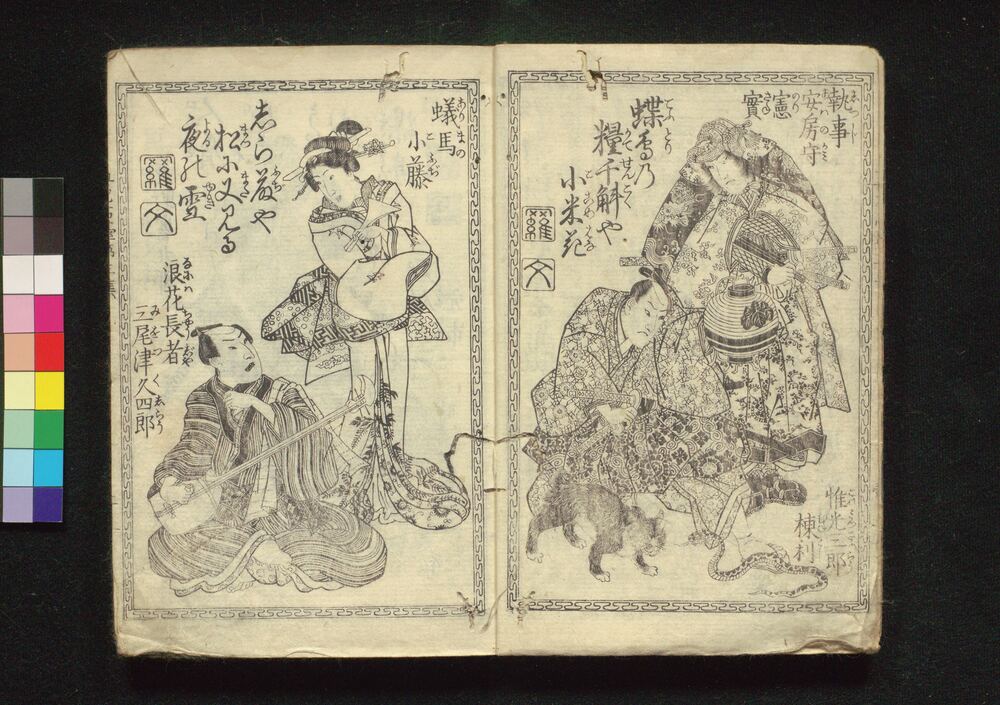 執事
安房守
憲
實
蝶鳥乃
糧千斛や
小米花
羅
文
惟光三郎
棟利
蟻馬
小藤
志ら藤や
松小又見る
夜の雪
羅
文
浪花長者
三尾津久四郎